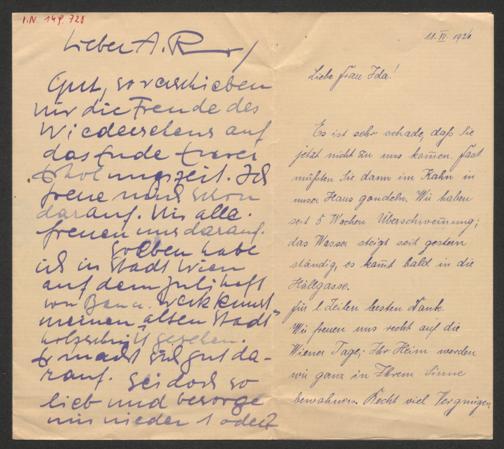 I.N. 149.728
Lieber A. R.
Gut, so verschieben
wir die Freude des
Wiedersehens auf
das Ende Eurer
Erholungszeit. Ich
freue mich schon
darauf. Wir alle
freuen uns darauf.
Soeben habe
ich in Stadt Wien
auf dem Juliheft
von Bau u. Werkkunst
meinen „alten Stadt"
Holzschnitt gesehen.
Er macht sich gut da-
rauf. Sei doch so
lieb und besorge
mir wieder 1 oder
11.VI 1926
Liebe Frau Ida!
Es ist sehr schade, daß Sie
jetzt nicht zu uns kom̄en. Fast
müßten Sie dann im Kahn in
unser Haus gondeln. Wir haben
seit 5 Wochen Überschwem̄ung;
das Wasser steigt seit gestern
ständig, es kom̄t bald in die
Hallgasse.
für l. Zeilen besten Dank.
Wir freuen uns recht auf die
Wiener Tage; Ihr Heim werden
wir ganz in Ihrem Sinne
bewahren. Recht viel Vergnügen